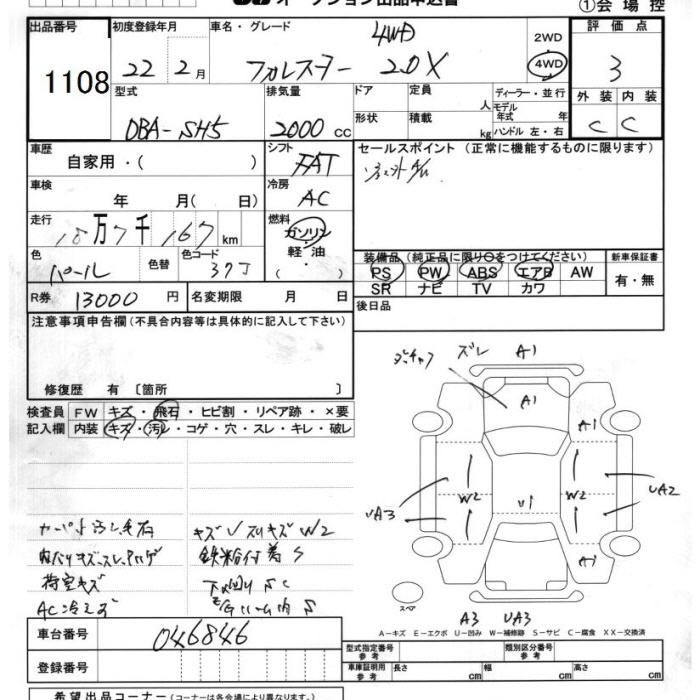 オークション出品申込書
①会場控
出品番号
1108
初度登録年月
22 2月
車名・グレード
4WD
フォレスター 2.0X
2WD
4WD
評価点
3
型式
DBA-SH5
排気量
2000 CC
ドア
形状
定員 人
積載 kg
ディーラー・並行
モデル年式 年
ハンドル 左・右
外装 内装
C C
車歴
自家用・( )
シフト
FAT
セールスポイント (正常に機能するものに限ります)
車検
年 月( 日)
冷房
AC
走行
万7千 167 km
燃料
ガソリン
軽油
( )
色
パール
色替
色コード
37J
装備品 (純正品に限り○をつけてください)
PS PW ABS エアB AW
SR ナビ TV カワ
新車保証書
有・無
R券 13000 円
名変期限 月 日
後日品
注意事項申告欄(不具合内容等は具体的に記入して下さい)
修復歴 有 〔箇所 〕
検査員記入欄
FW キズ・飛石・ヒビ割・リペア跡・×要
内装 キズ・汚レ・コゲ・穴・スレ・キレ・破レ
ズレ A1
A1
A1
W2
W2
U1
UA3
UA2
A1
スペア
A3 UA3
キズ
W2
鉄粉付着 S
荷室キズ
下回り S C
AC冷えず
A－キズ E－エクボ U－凹み W－補修跡 S－サビ C－腐食 XX－交換済
車台番号
046846
登録番号
型式指定番号 参考
類別区分番号 参考
車庫証明用 参考
長さ cm
幅 cm
高さ cm
希望出品コーナー (コーナーは各会場により異なります)